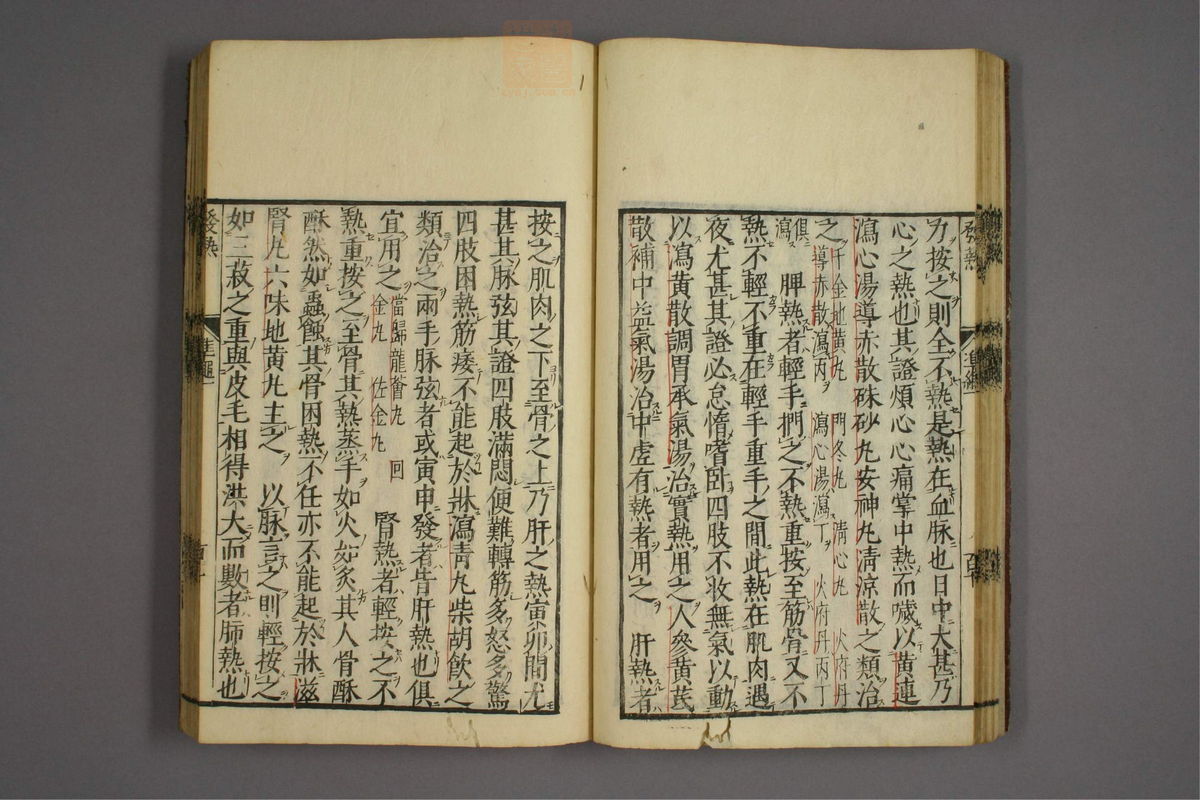 力按之則全不熱是熱在血脉也日中大甚乃
心之熱也其證煩心心痛掌中熱而噦以黃連
瀉心湯導赤散硃砂丸安神丸淸涼散之類治
之千金地黃丸 門冬丸 淸心丸 火府丹
導赤散瀉丙 瀉心湯瀉丁 火府丹丙丁
俱瀉 脾熱者輕手捫之不熱重按至筋骨又不
熱不輕不重在輕手重手之間此熱在肌肉遇
夜尤甚其證必怠惰嗜卧四肢不收無氣以動
以瀉黃散調胃承氣湯治實熱用之人參黃芪
散補中益氣湯治中虛有熱者用之 肝熱者
按之肌肉之下至骨之上乃肝之熱寅卯間尤
甚其脉弦其證四肢滿悶便難轉筋多怒多驚
四肢困熱筋痿不能起於牀瀉靑丸柴胡飮之
類治之兩手脉弦者或寅申發者皆肝熱也俱
宜用之當歸龍薈丸 回
金丸 佐金丸 腎熱者輕按之不
熱重按之至骨其熱蒸手如火如炙其人骨酥
酥然如蟲蝕其骨困熱不任亦不能起於牀滋
腎丸六味地黃丸主之 以脉言之則輕按之
如三菽之重與皮毛相得洪大而數者肺熱也
發熱